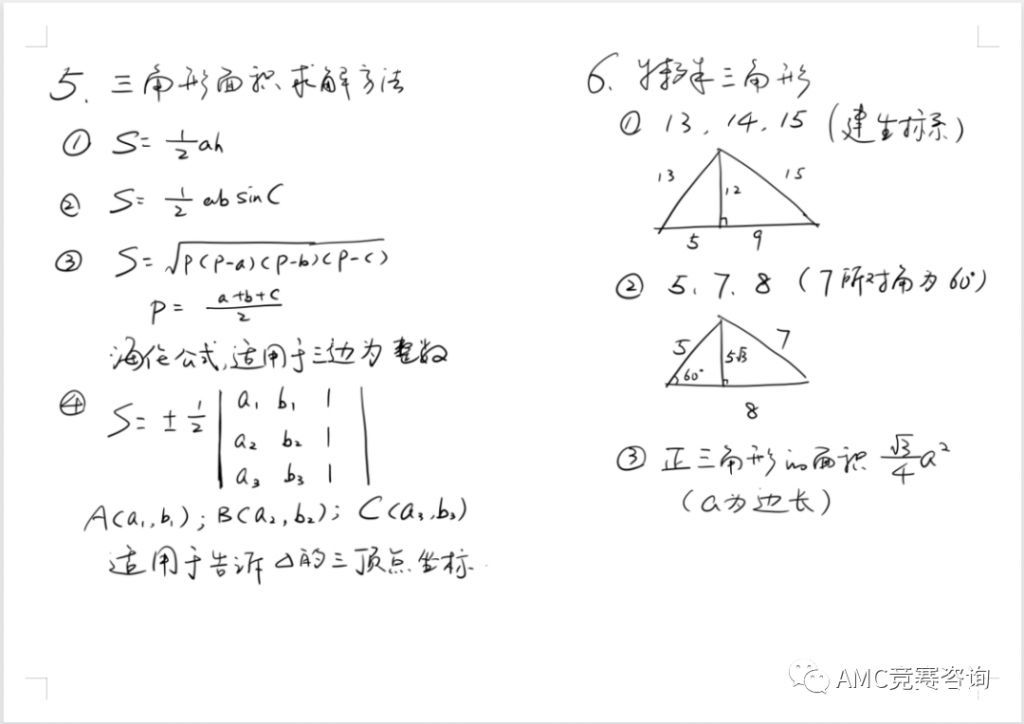 5. 三角形面积求解方法
① S= 1/2 ah
② S= 1/2 ab sinC
③ S= √P(P-a)(P-b)(P-c)
P= a+b+c/2
海伦公式,适用于三边为整数
④ S= ± 1/2 | a₁ b₁ 1 |
a₂ b₂ 1
a₃ b₃ 1
A(a₁,b₁); B(a₂,b₂); C(a₃,b₃)
适用于告诉△的三顶点坐标.
6. 特殊三角形
① 13, 14, 15 (建坐标系)
13 12 15
5 9
② 5、7、8 (7所对角为60°)
5 5√3 7
60°
8
③ 正三角形的面积 √3/4 a²
(a为边长)
AMC竞赛咨询